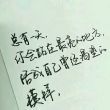 总有一天
你会站在最亮的地方
活成自己曾经渴望的
模样